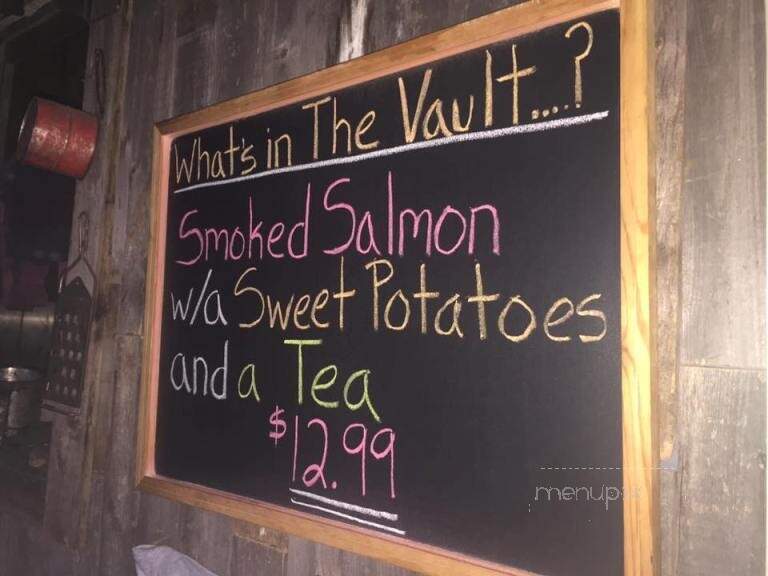 What's in The Vault....?
Smoked Salmon
w/a Sweet Potatoes
and a Tea
$12.99